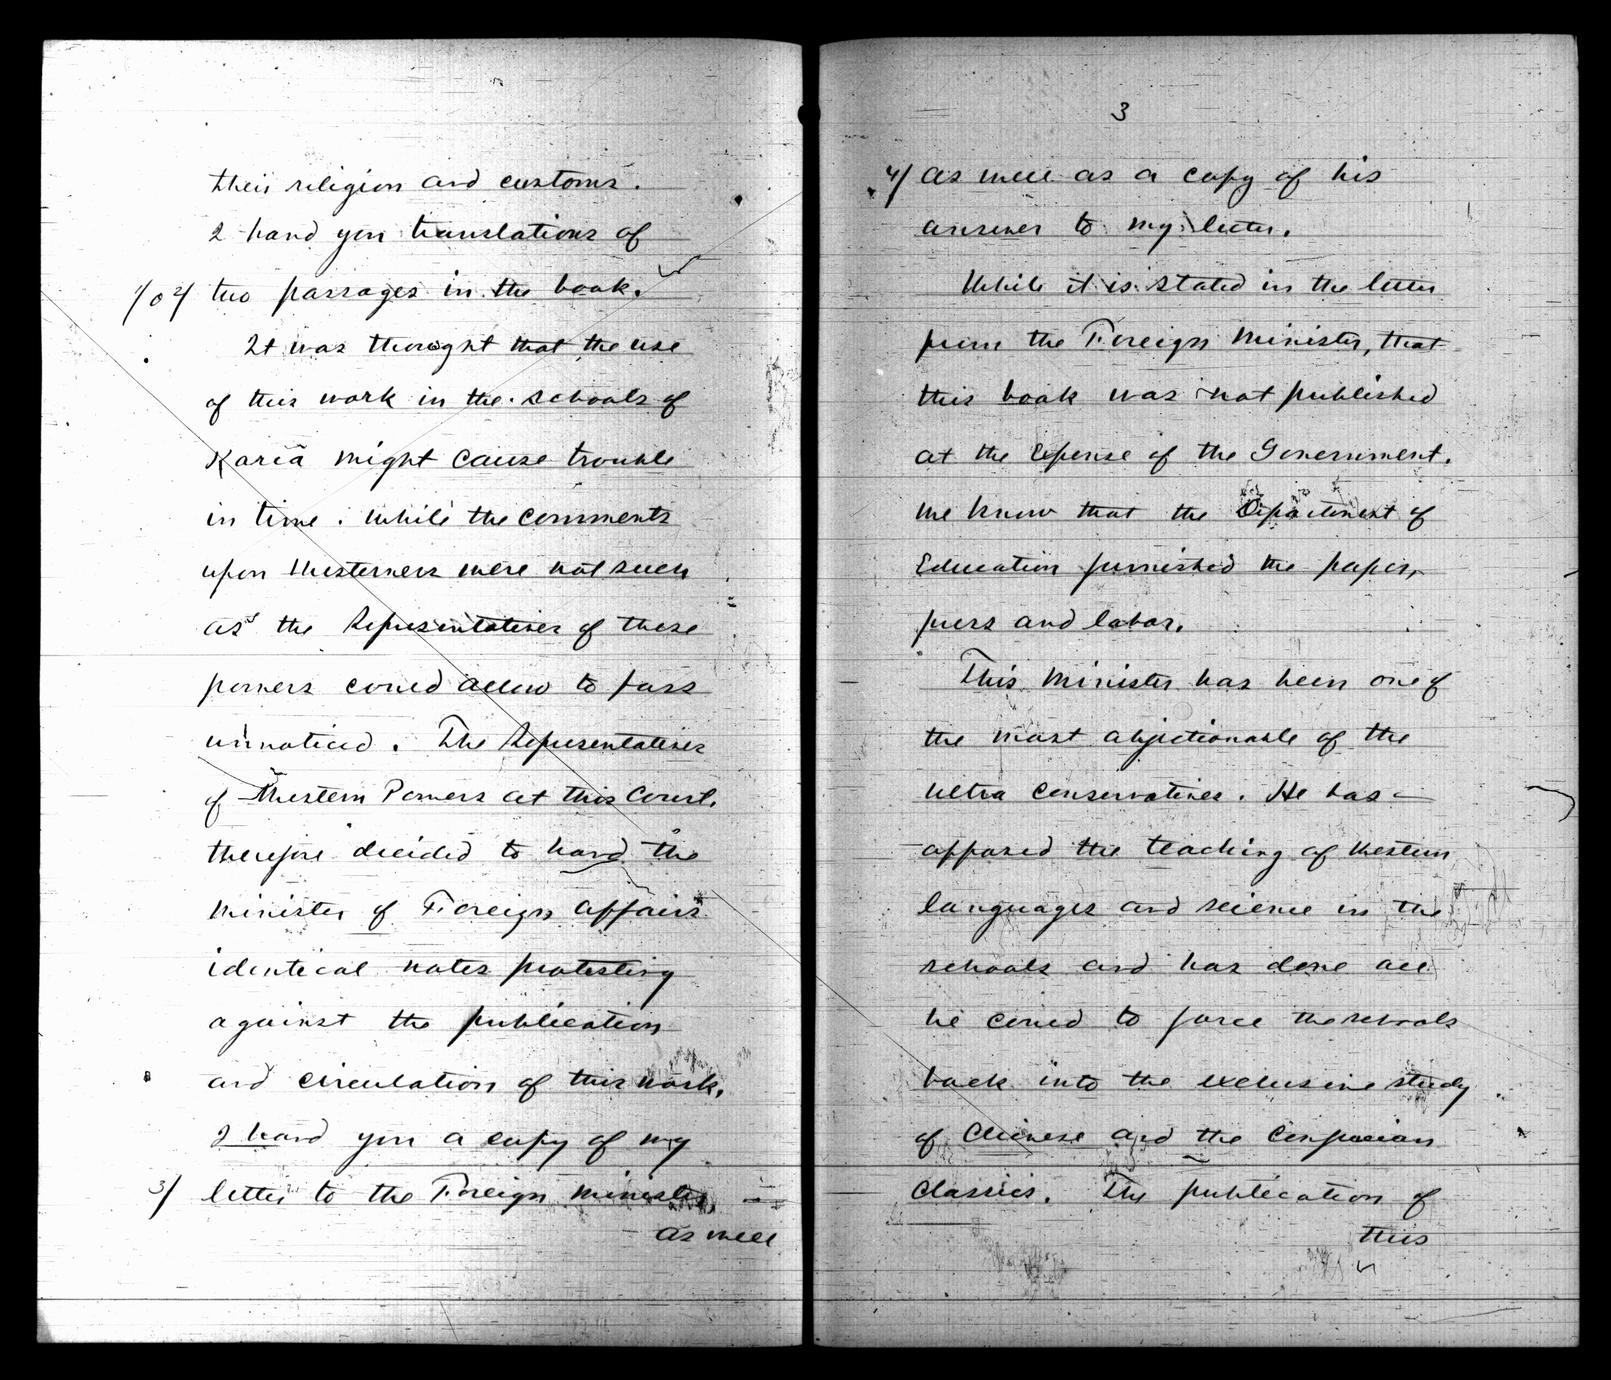 their religion and customs.
I hand you translations of
1/ 2/ two passages in the book.
It was thought that the use
of this work in the schools of
Korea might cause trouble
in time. While the comments
upon Westerners were not such
as the Representatives of these
powers could allow to pass
unnoticed. The Representatives
of Western Powers at this Court,
therefore decided to hand the
Minister of Foreign affairs
identical notes protesting
against the publication
and circulation of this work.
I hand you a copy of my
3/ letter to the Foreign Minister
as well
3
4/ as well as a copy of his
answer to my letter.
While it is stated in the letter
from the Foreign Minister, that
this book was not published
at the Expense of the Government.
We know that the Department of
Education furnished the paper,
press and labor.
This Minister has been one of
the most objectionable of the
ultra conservatives. He has
opposed the teaching of Western
languages and science in the
schools and has done all
he could to force the schools
back into the exclusive study
of Chinese and the Confucian
Classics. The publication of
this